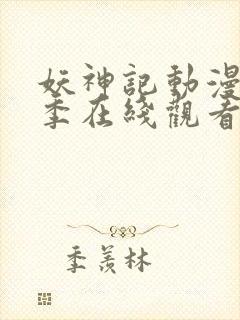 妖神記動漫
季在綫觀看
季羨林